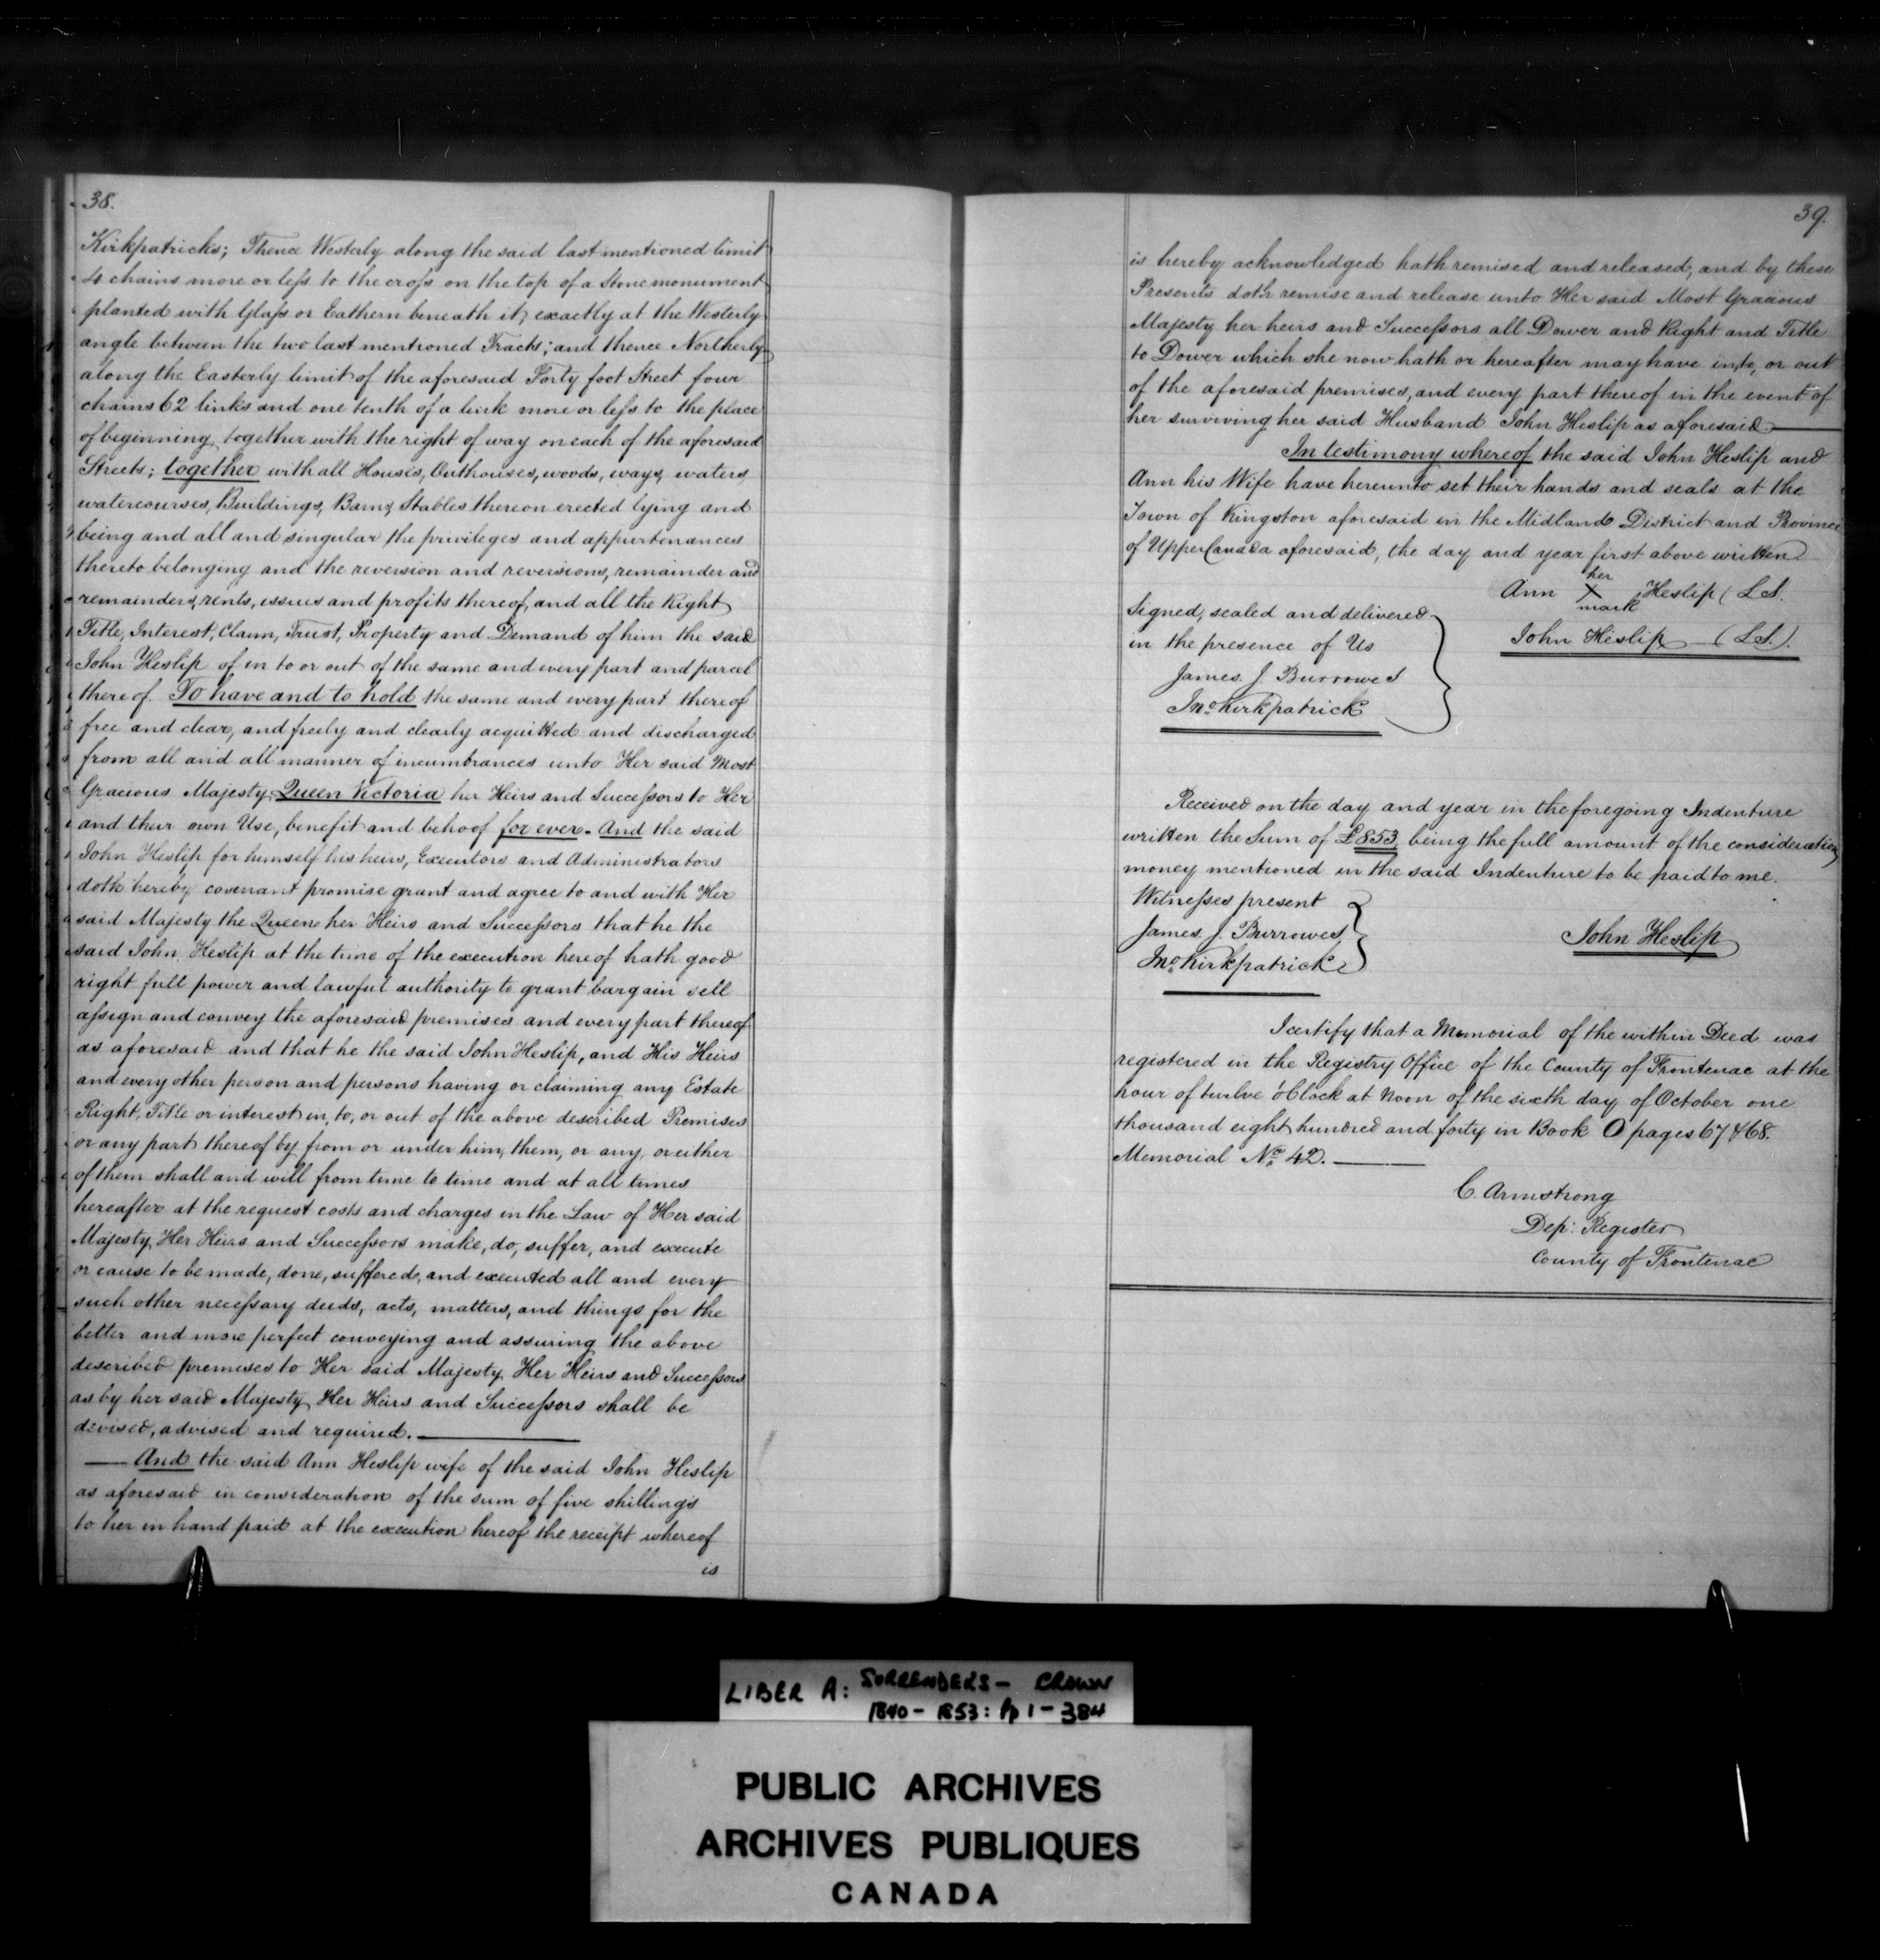 38.
Kirkpatricks; Thence Westerly along the said last mentioned limit
4 chains more or less to the cross on the top of a Stone monument
planted with Glass or Eathern beneath it, exactly at the Westerly
angle between the two last mentioned Tracts; and thence Northerly
along the Easterly limit of the aforesaid Forty foot Street four
chains 62 links and one tenth of a link more or less to the place
of beginning, together with the right of way on each of the aforesaid
Streets; together with all Houses, Outhouses, woods, ways, waters,
watercourses, Buildings, Barns, Stables thereon erected lying and
being and all and singular the privileges and appurtenances
thereto belonging and the reversion and reversions, remainder and
remainders, rents, issues and profits thereof, and all the Right,
Title, Interest, Claim, Trust, Property and Demand of him the said
John Heslip of in to or out of the same and every part and parcel
thereof. To have and to hold the same and every part thereof
free and clear, and freely and clearly acquitted and discharged
from all and all manner of incumbrances unto Her said Most
Gracious Majesty, Queen Victoria her Heirs and Successors to Her
and their own Use, benefit and behoof for ever. And the said
John Heslip for himself his heirs, Executors and Administrators
doth hereby covenant promise grant and agree to and with Her
said Majesty the Queen her Heirs and Successors that he the
said John Heslip at the time of the execution hereof hath good
right full power and lawful authority to grant bargain sell
assign and convey the aforesaid premises and every part thereof
as aforesaid and that he the said John Heslip, and His Heirs
and every other person and persons having or claiming any Estate
Right, Title or interest in, to, or out of the above described Premises
or any part thereof by from or under him, them, or any, or either
of them shall and will from time to time and at all times
hereafter at the request costs and charges in the Law of Her said
Majesty, Her Heirs and Successors make, do, suffer, and execute
or cause to be made, done, suffered, and executed all and every
such other necessary deeds, acts, matters, and things for the
better and more perfect conveying and assuring the above
described premises to Her said Majesty Her Heirs and Successors
as by her said Majesty Her Heirs and Successors shall be
devised, advised and required.
And the said Ann Heslip wife of the said John Heslip
as aforesaid in consideration of the sum of five shillings
to her in hand paid at the execution hereof the receipt whereof
is
39.
is hereby acknowledged hath remised and released, and by these
Presents doth remise and release unto Her said Most Gracious
Majesty her heirs and Successors all Dower and Right and Title
to Dower which she now hath or hereafter may have in, to, or out
of the aforesaid premises, and every part thereof in the event of
her surviving her said Husband John Heslip as aforesaid.
In testimony whereof the said John Heslip and
Ann his Wife have hereunto set their hands and seals at the
Town of Kingston aforesaid in the Midland District and Province
of Upper Canada aforesaid, the day and year first above written
her
Ann X Heslip (L.S.
mark
Signed, sealed and delivered
John Heslip (L.S.).
in the presence of Us
James. J. Burrowes
Jno. Kirkpatrick
Received on the day and year in the foregoing Indenture
written the Sum of £853 being the full amount of the consideration
money mentioned in the said Indenture to be paid to me.
Witnesses present
James. J. Burrowes
John Heslip
Jno. Kirkpatrick
I certify that a Memorial of the within Deed was
registered in the Registry Office of the County of Frontenac at the
hour of twelve o'Clock at Noon of the sixth day of October one
thousand eight hundred and forty in Book O pages 67 & 68.
Memorial No. 42.
C. Armstrong
Dep: Register
County of Frontenac
LIBER A: SURRENDERS - CROWN
1840 - 1853: Pp 1 - 384
PUBLIC ARCHIVES
ARCHIVES PUBLIQUES
CANADA